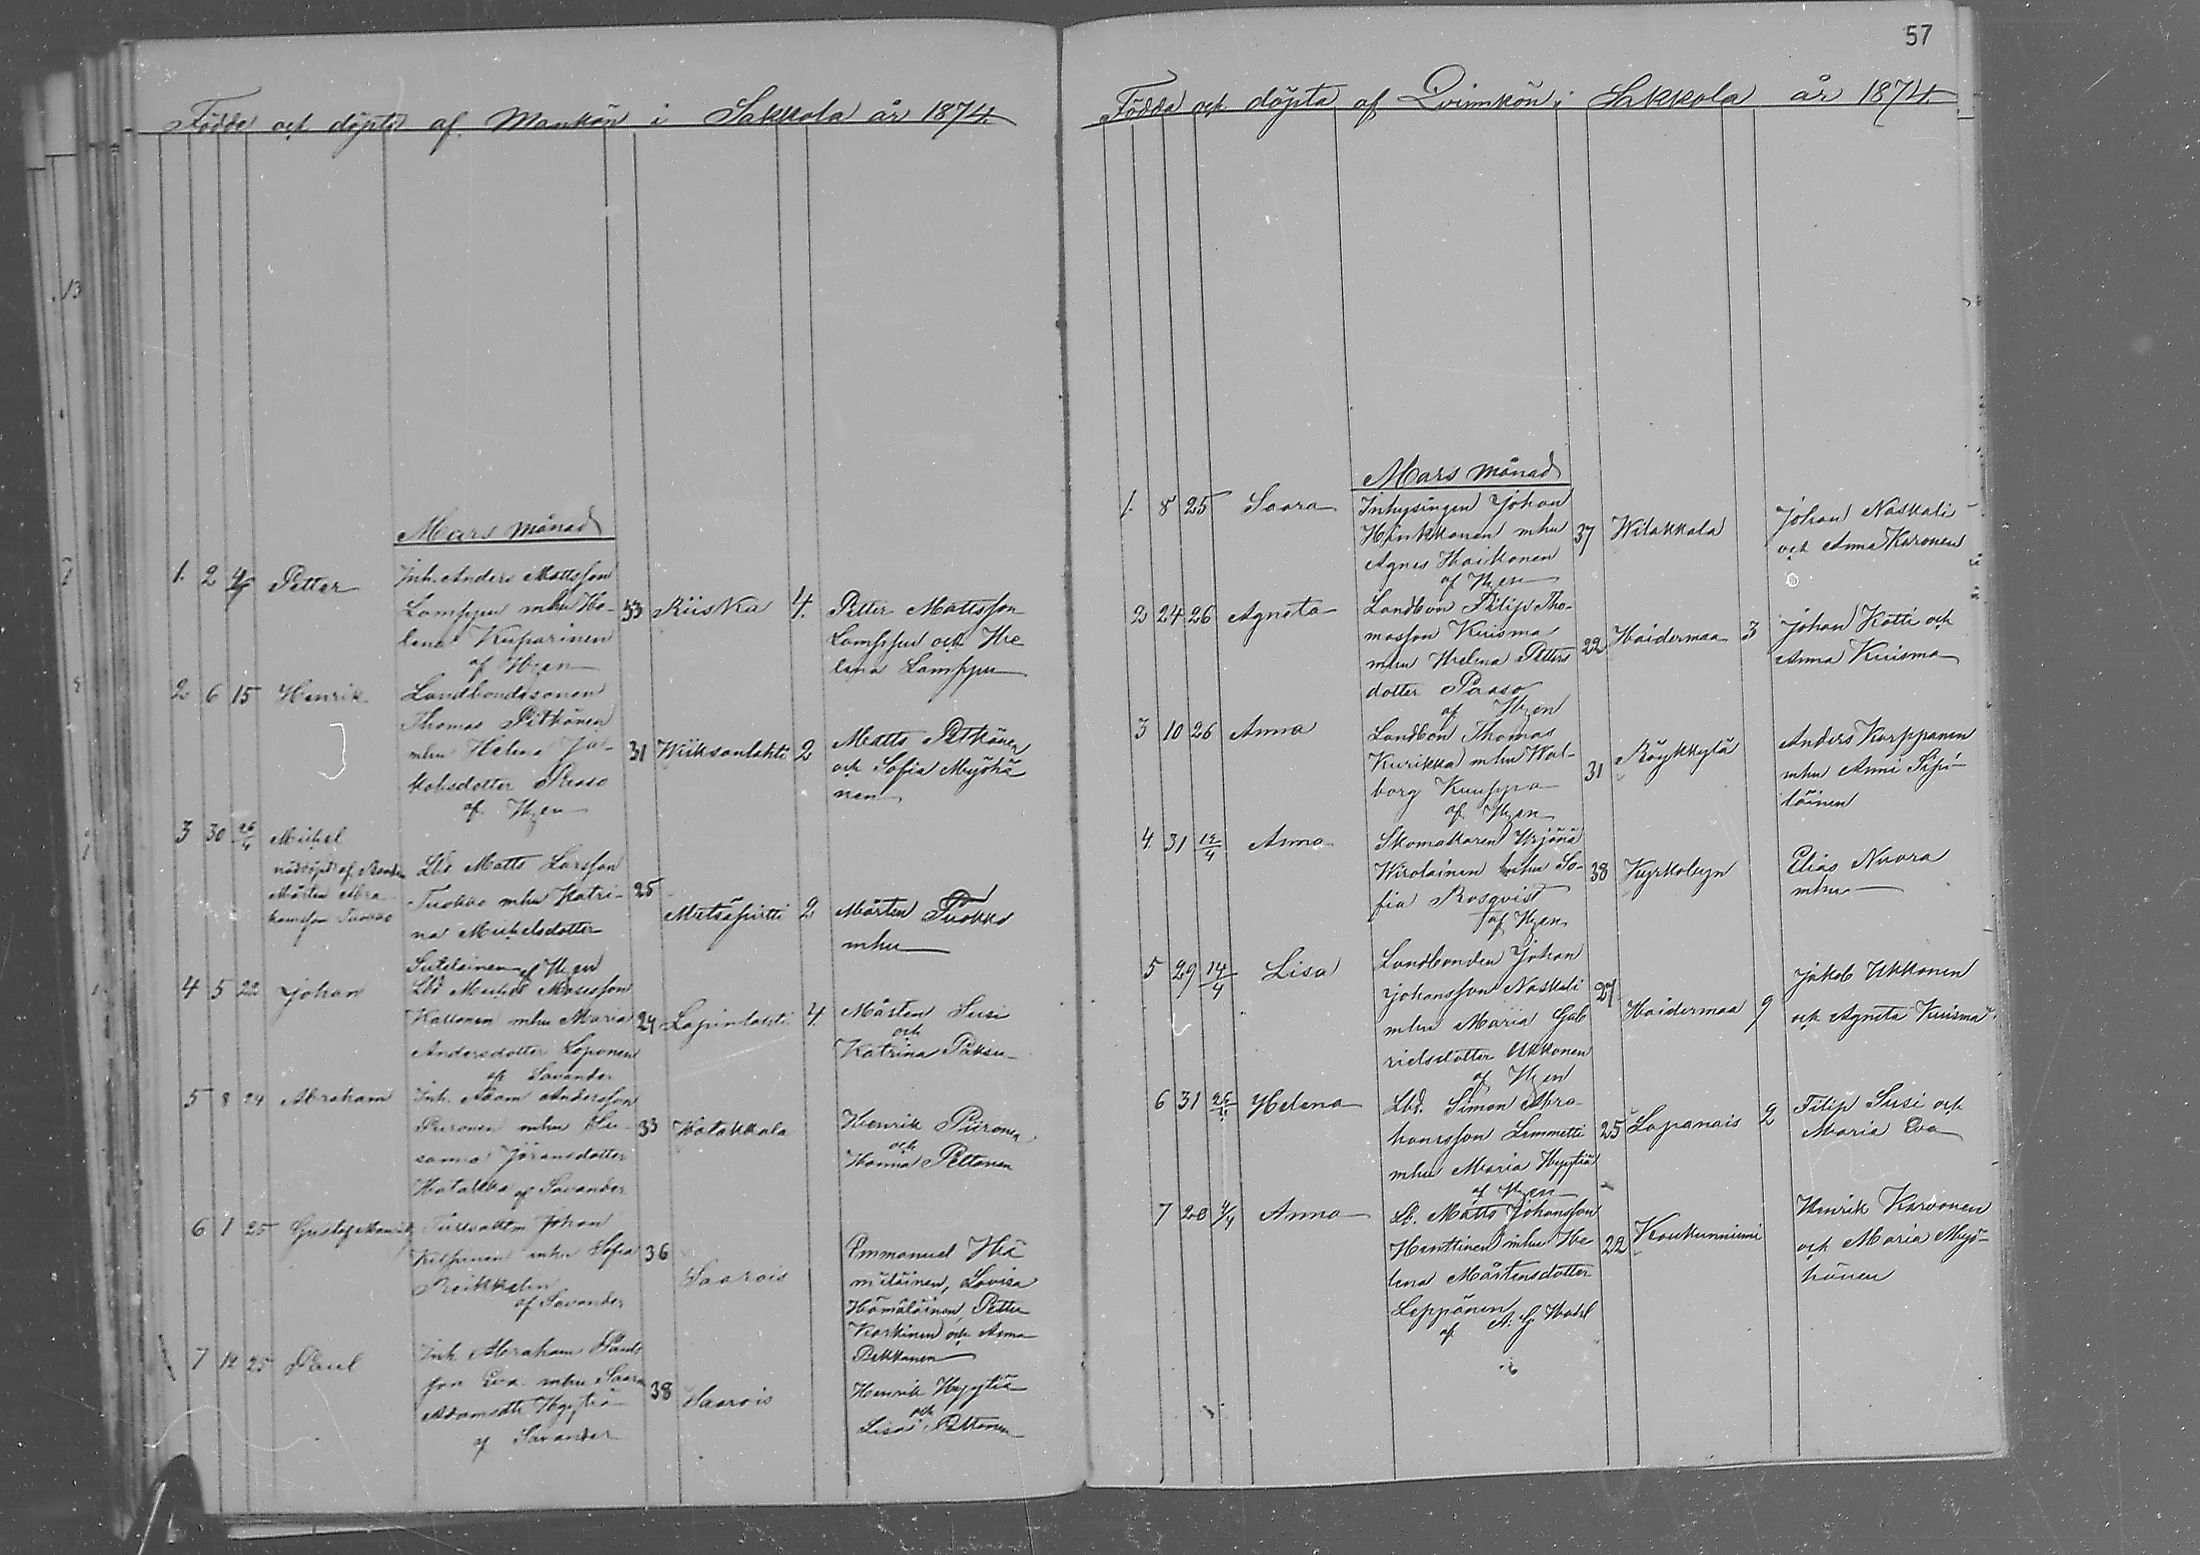 Födde och döpte af Mankön i Sakkola år 1874.
Mars månad
1. 2 4/5 Petter
Inh. Anders Mattsson
Lamppu mhu He-
lena Kuparinen
af Hzen
33 Riiska 4.
Petter Mattsson
Lamppu och He
lena Lamppu
2 6 15 Henrik
Landbondesonen
Thomas Pitkänen
mhu Helena Ja-
kobsdotter Russo
af Hzen
31 Wiiksanlahti 2
Matts Pitkänen
och Sofia Myöhä
nen
3 30 26/4 Mikel
nöddöpt af Bonden
Mårten Abra
hamsson Tuokko
Lbd Matts Larsson
Tuokko mhu Katri-
na Mickelsdotter
Sutelainen af Hzen
25 Metsäpirtti 2
Mårten Tuokko
mhu
4 5 22 Johan
Lbd Mickel Mosesson
Kallonen mhu Maria
Andersdotter Loponen
af Savander
24 Lapinlahti 4.
Mårten Susi
och
Katrina Paksu
5 8 24 Abraham
Inh. Adam Andersson
Piironen mhu Su-
sanna Göransdotter
Hatakka af Savander
33 Hatakkala
Henrik Piironen
och
Hanna Peltonen
6 1 25
Johan
mhu Sofia
af Savander
36 Saarois
Emmanuel Hä
mäläinen, Lovisa
Hämäläinen, Petter
Karkinen och Anna
Pekkanen
7 12 25 Paul
Inh. Abraham Pauls
son Eva mhu Saara
Adamsdtr Hyytiä
af Savander
38 Saarois
Henrik Hyytiä
och
Lisa Peltonen
57
Födda och döpta af Qvinnkön i Sakkola år 1874.
Mars månad
1. 8 25 Saara
Inhysingen Johan
Hinkkanen mhu
Agnes Haikonen
af Hzen
37 Wilakkala
Johan Naskali
och Anna Karonen
2 24 26 Agneta
Landbon Filip Tho-
masson Kuisma
mhu Helena Petters
dotter Paaso
af Hzen
22 Haidermaa 3
Johan Kotti och
Anna Kuisma
3 10 26 Anna
Landbon Thomas
Kurikka mhu Wal-
borg Kuuppa
af Hzen
31 Röykkylä
Anders Karppanen
mhu Anni Sipi-
läinen
4 31 12/4 Anna
Skomakaren Yrjänä
Wirolainen mhu So-
fia Rosqvist
af Hzen
38 Kyrkobyn
Elias Nuora
mhu
5 29 14/4 Lisa
Landbonden Johan
Johansson Naskali
mhu Maria Gab
rielsdotter Ukkonen
af Hzen
27 Haidermaa 9
Jakob Ukkonen
och Agneta Kuisma
6 31 26/4 Helena
Lbd. Simon Abra-
hamsson Lemmetti
mhu Maria Hyytiä
af Hzen
25 Lapanais 2
Filip Susi och
Maria Eva
7 20 4/4 Anna
Lb. Matts Johansson
Hanttinen mhu He
lena Mårtensdotter
Leppänen
af A. G. Wahl
22 Koukunniemi
Henrik Karvonen
och Maria Myö-
hänen